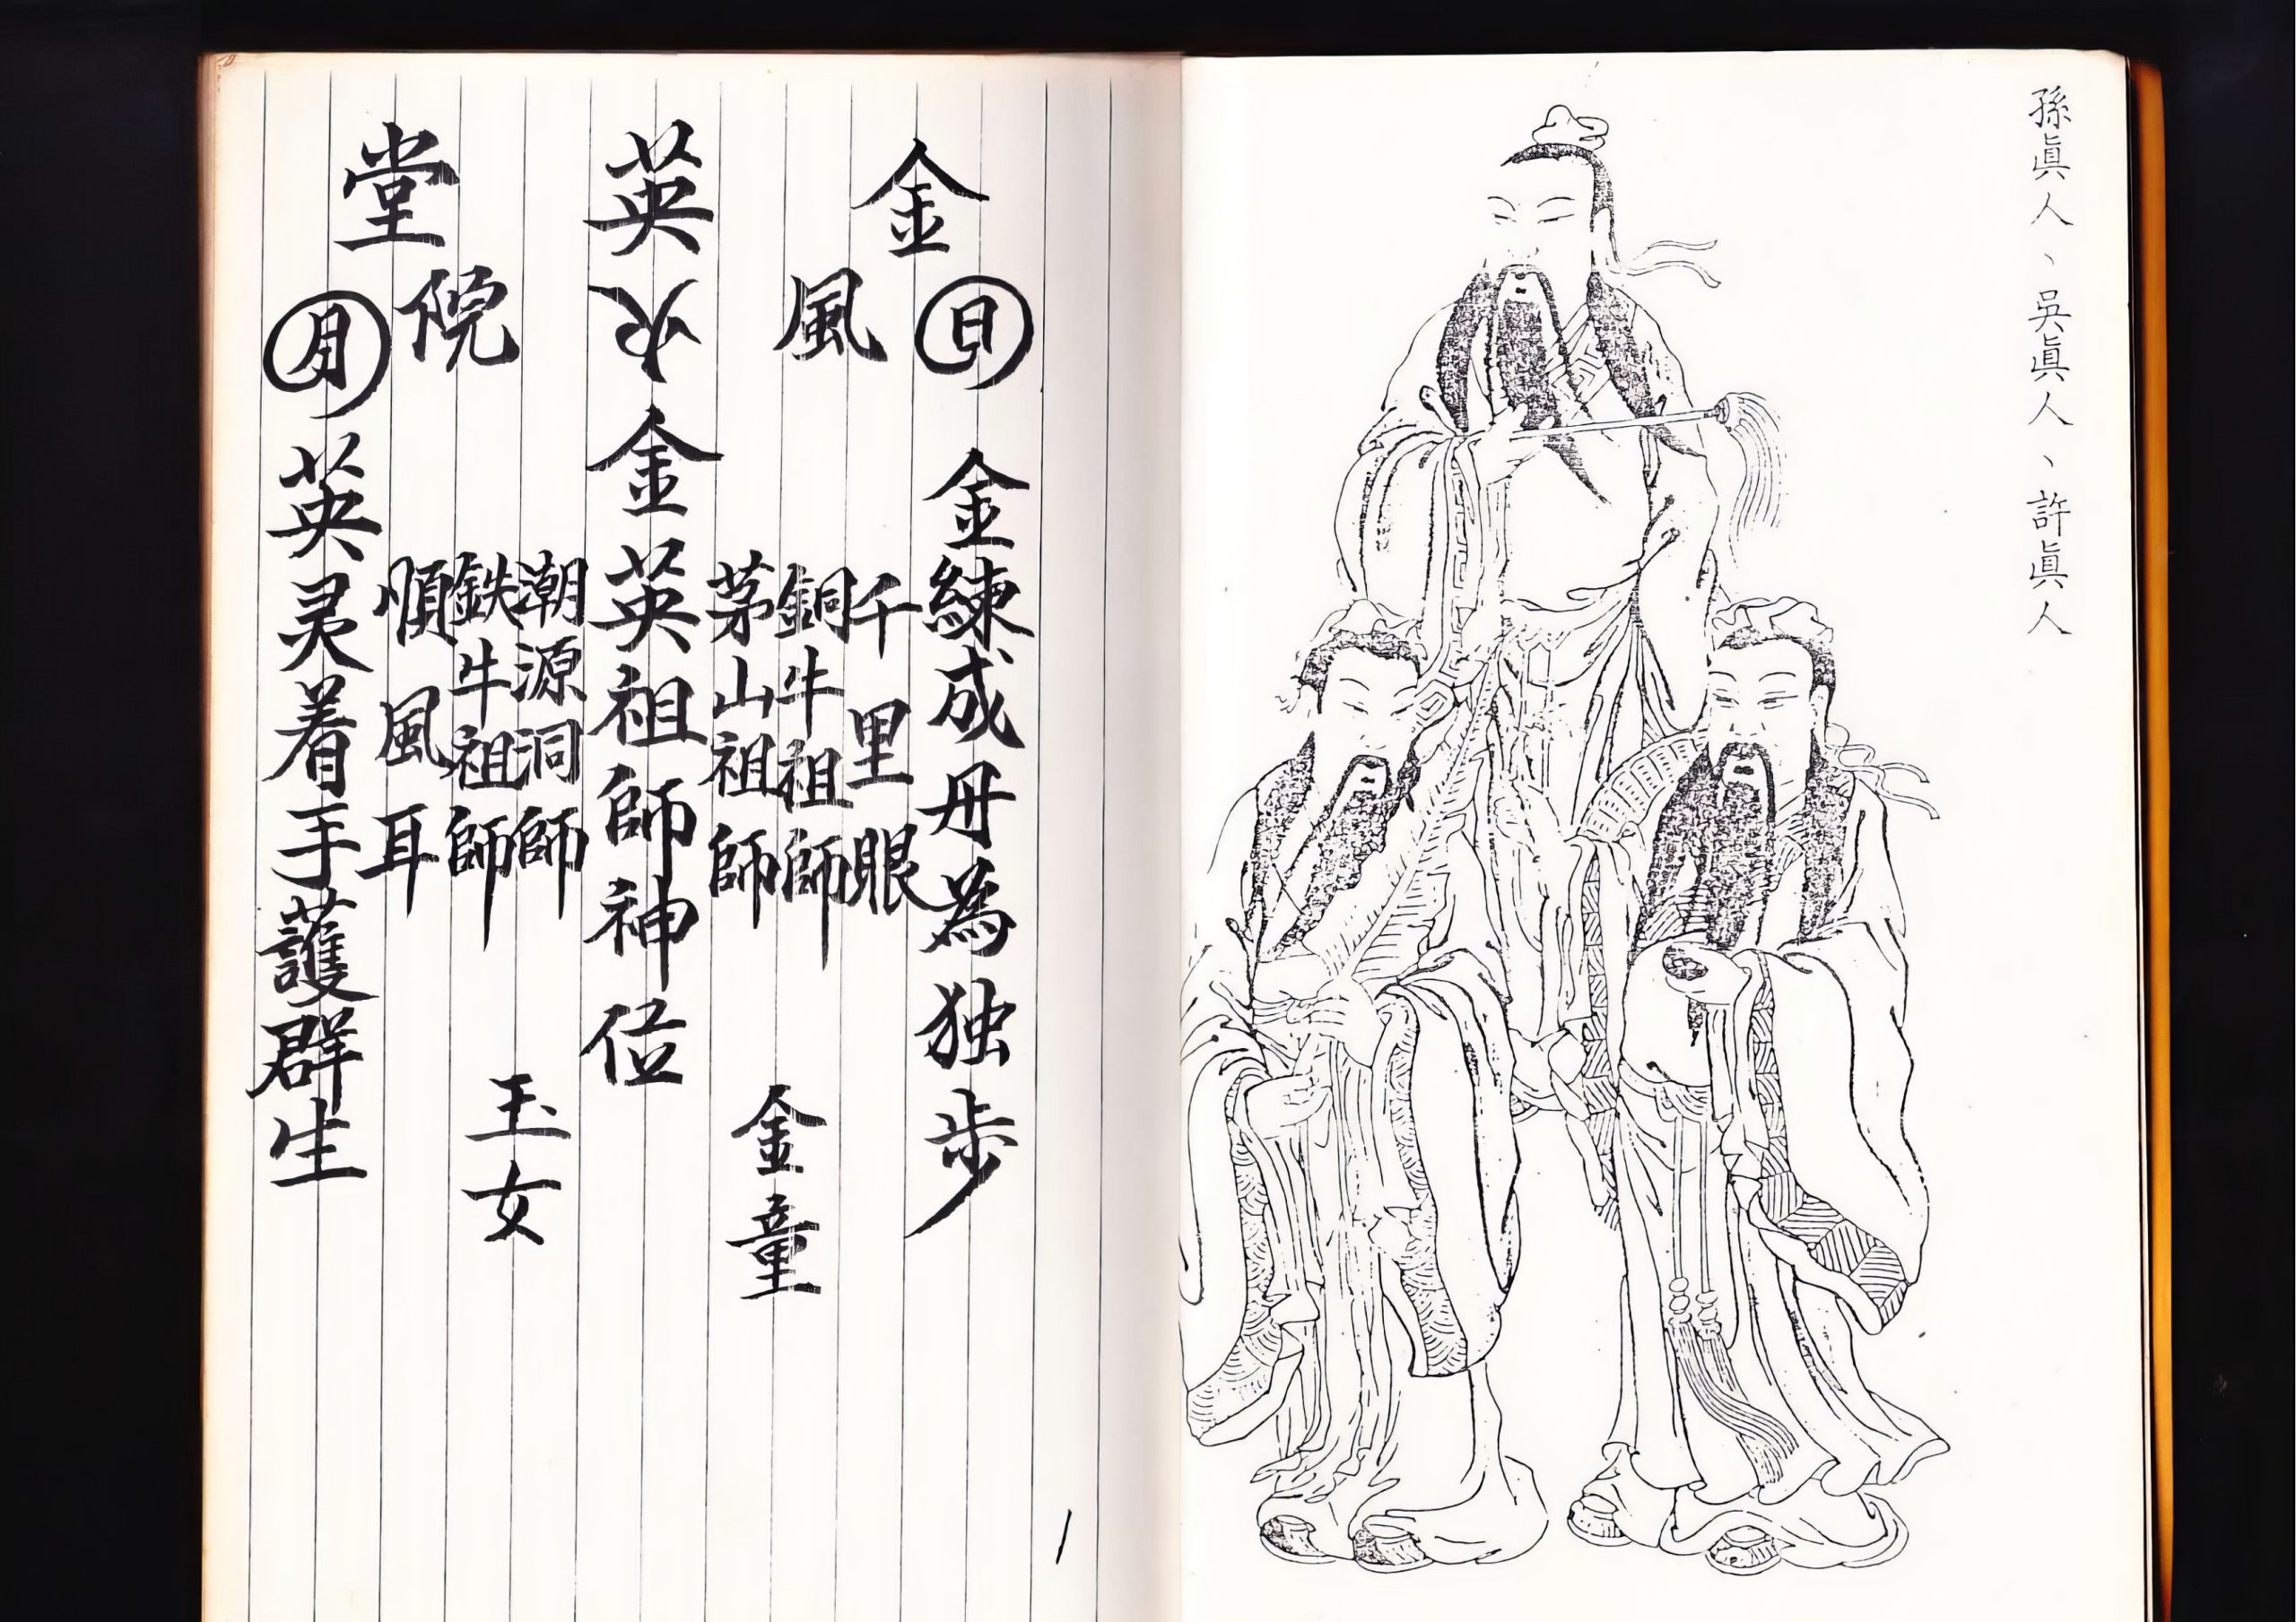 孫眞人、吳眞人、許眞人
金英堂
日
風
火
院
月
金練成丹為独步
千里眼
銅牛祖師
茅山祖師
金童
金英祖師神位
潮源洞師
鉄牛祖師
順風耳
玉女
英灵着手護群生
1